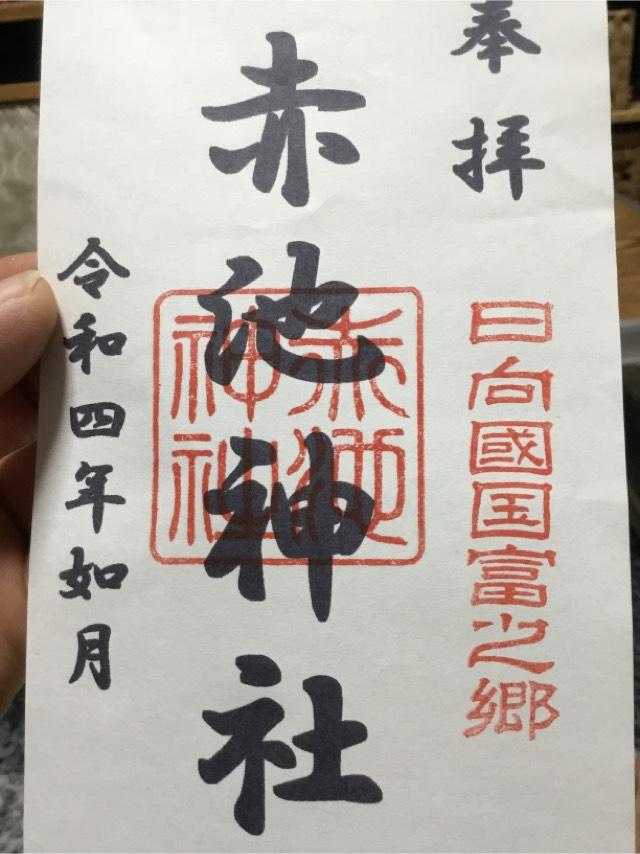 奉拝
日向國国富之郷
赤池神社
赤池神社
令和四年如月